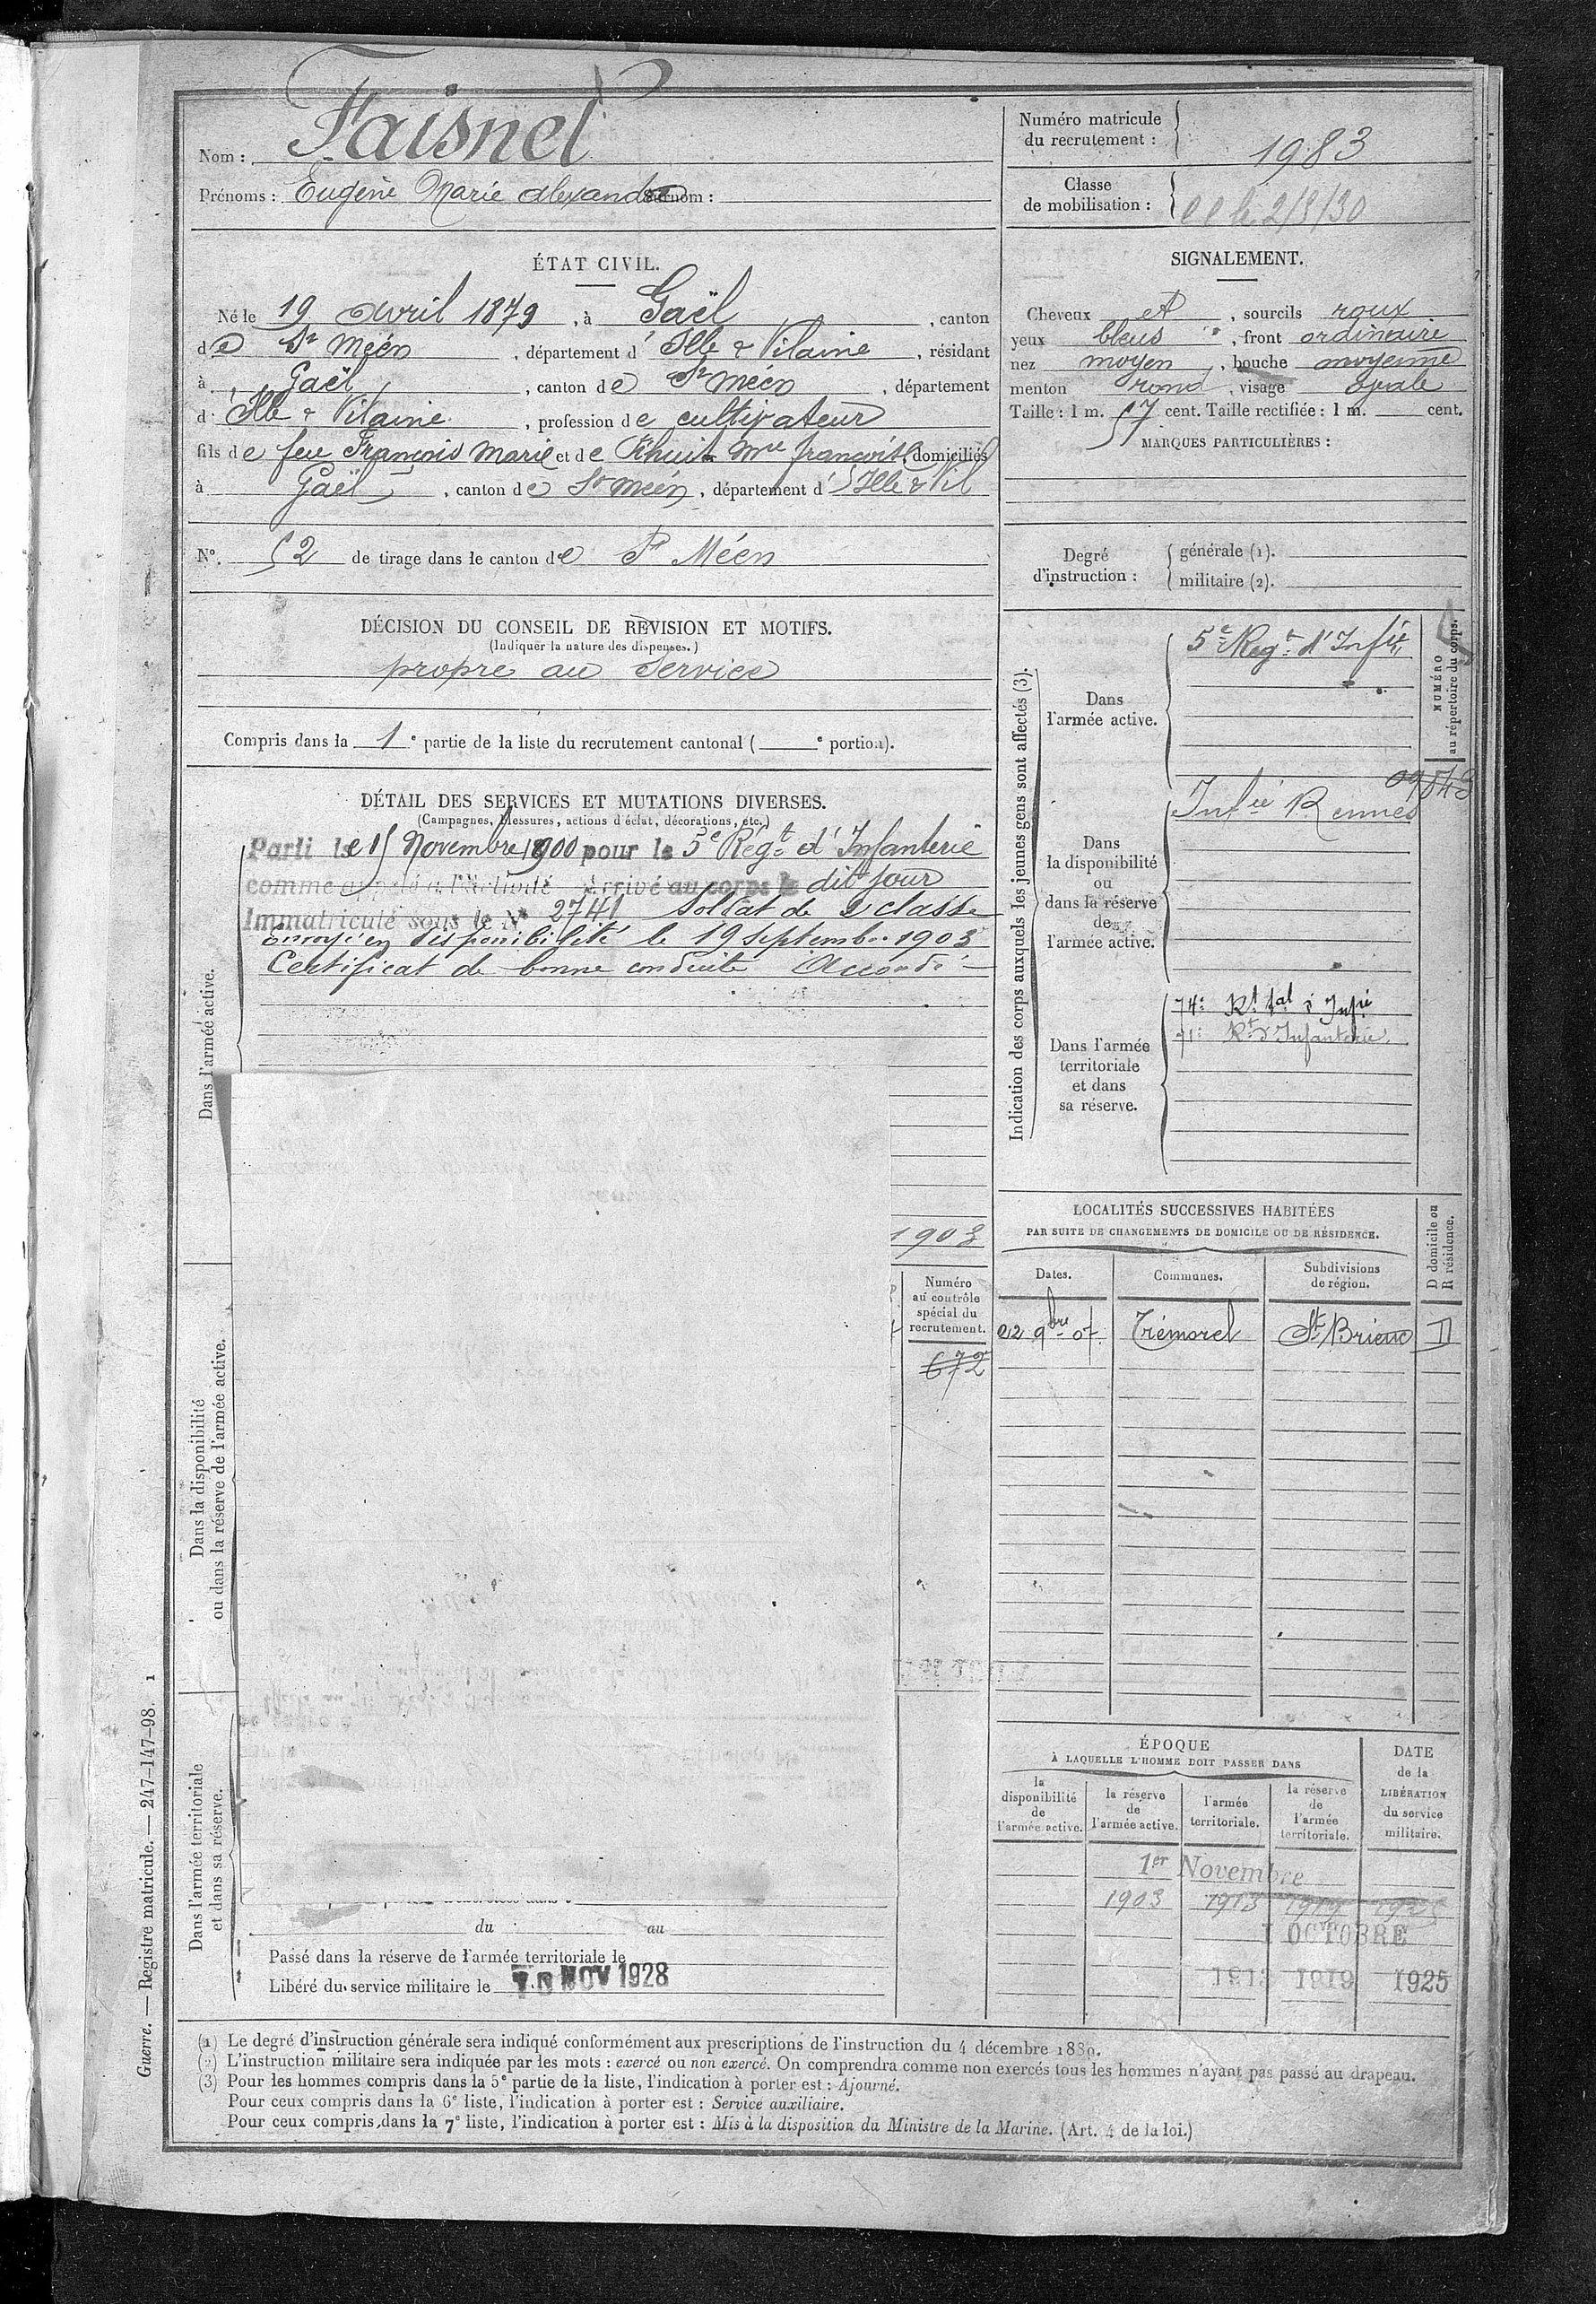 Nom : Faisnel
Prénoms : Eugène Marie Alexandre Surnom :
Numéro matricule
du recrutement : 1983
Classe
de mobilisation :
ÉTAT CIVIL.
Né le 19 avril 1879, à Gaël, canton
de St Méen, département d'Ille & Vilaine, résidant
à Gaël, canton de St Méen, département
d'Ille & Vilaine, profession de cultivateur
fils de feu François Marie et de Mie françoise domiciliés
à Gaël, canton de St Méen, département d'Ille & Vil
N°. 52 de tirage dans le canton de St Méen
SIGNALEMENT.
Cheveux et, sourcils roux
yeux bleus, front ordinaire
nez moyen, bouche moyenne
menton rond, visage ovale
Taille : 1 m. 57 cent. Taille rectifiée : 1 m. cent.
MARQUES PARTICULIÈRES :
Degré
d'instruction :
générale (1).
militaire (2).
DÉCISION DU CONSEIL DE RÉVISION ET MOTIFS.
(Indiquer la nature des dispenses.)
propre au service
Compris dans la 1e partie de la liste du recrutement cantonal ( e portion).
DÉTAIL DES SERVICES ET MUTATIONS DIVERSES.
(Campagnes, blessures, actions d'éclat, décorations, etc.)
Dans l'armée active.
Parti le 15 Novembre 1900 pour le 5e Régt d'Infanterie
comme appelé à l'activité Arrivé au corps le dit jour
Immatriculé sous le N° 2741 soldat de 2e classe
Envoyé en disponibilité le 19 septembre 1903
Certificat de bonne conduite Accordé
1903
Dans la disponibilité
ou dans la réserve de l'armée active.
Numéro
au contrôle
spécial du
recrutement.
672
Dans l'armée territoriale
et dans sa réserve.
du au
Passé dans la réserve de l'armée territoriale le
Libéré du service militaire le 10 NOV 1928
Indication des corps auxquels les jeunes gens sont affectés (3).
Dans
l'armée active.
5e Régt d'Infie
NUMÉRO
au répertoire du corps.
Dans
la disponibilité
ou
dans la réserve
de
l'armée active.
Infie Rennes
Dans l'armée
territoriale
et dans
sa réserve.
74e Rt tal d'Infie
71e Rt d'Infanterie.
LOCALITÉS SUCCESSIVES HABITÉES
PAR SUITE DE CHANGEMENTS DE DOMICILE OU DE RÉSIDENCE.
Dates.
Communes.
Subdivisions
de région.
D domicile ou
R résidence.
22 9bre 07. Trémorel St Brieuc D
ÉPOQUE
À LAQUELLE L'HOMME DOIT PASSER DANS
la
disponibilité
de
l'armée active.
la réserve
de
l'armée active.
l'armée
territoriale.
la réserve
de
l'armée
territoriale.
DATE
de la
LIBÉRATION
du service
militaire.
1er Novembre
1903 1913 1919 1925
1 OCTOBRE
1913 1919 1925
Guerre. — Registre matricule. — 247-147-98. 1
(1) Le degré d'instruction générale sera indiqué conformément aux prescriptions de l'instruction du 4 décembre 1889.
(2) L'instruction militaire sera indiquée par les mots : exercé ou non exercé. On comprendra comme non exercés tous les hommes n'ayant pas passé au drapeau.
(3) Pour les hommes compris dans la 5e partie de la liste, l'indication à porter est : Ajourné.
Pour ceux compris dans la 6e liste, l'indication à porter est : Service auxiliaire.
Pour ceux compris dans la 7e liste, l'indication à porter est : Mis à la disposition du Ministre de la Marine. (Art. 4 de la loi.)